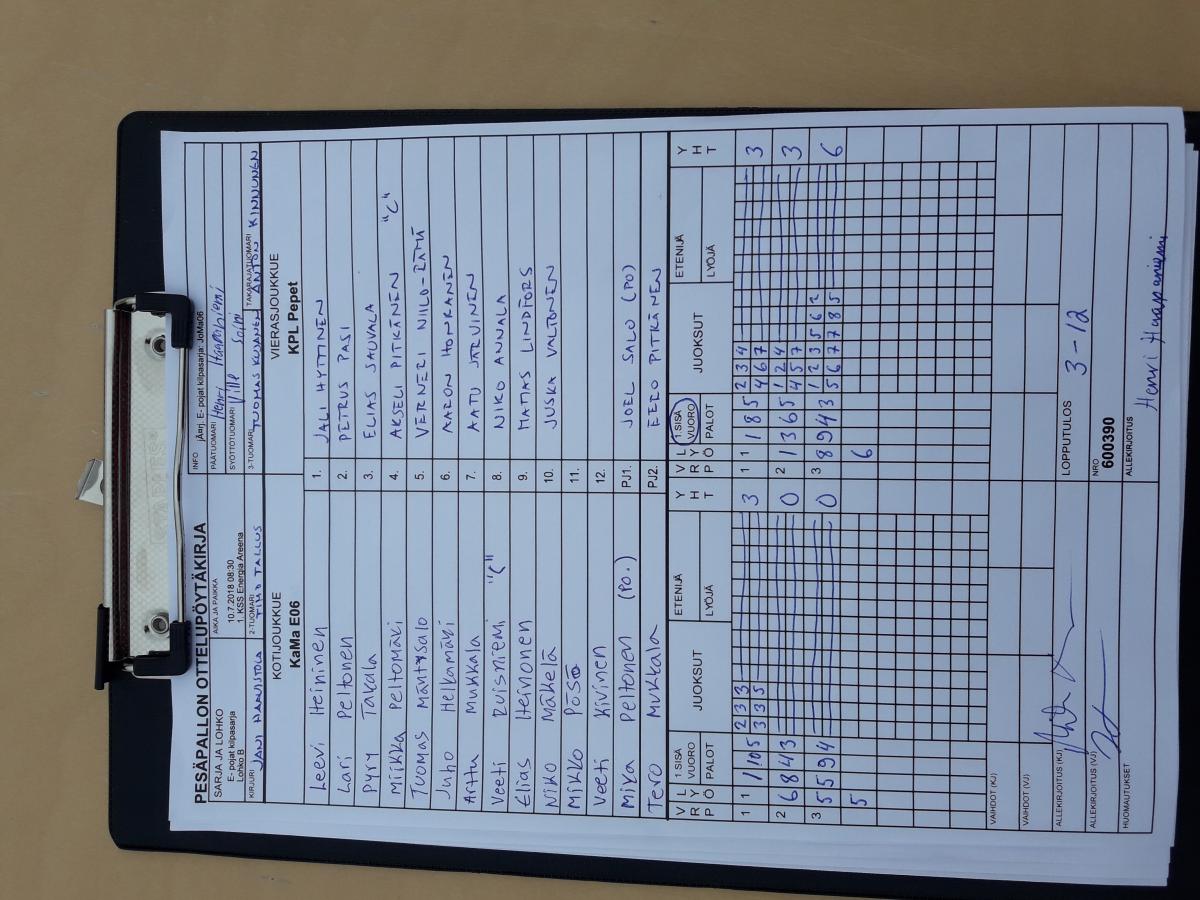 PESÄPALLON OTTELUPÖYTÄKIRJA
INFO jÃ¤rj. E- pojat kilpasarja: JoMa06
SARJA JA LOHKO
E- pojat kilpasarja
Lohko B
AIKA JA PAIKKA
10.7.2018 08:30
1. KSS Energia Areena
PÄÄTUOMARI Henri Haapaniemi
SYÖTTÖTUOMARI Ville Soini
KIRJURI JANI HARVISTOLA
2-TUOMARI TIMO TALLUS
3-TUOMARI TUOMAS KUJANEN
TAKARAJATUOMARI ANTON KINNUNEN
KOTIJOUKKUE VIERASJOUKKUE
KaMa E06 KPL Pepet
Leevi Heininen 1. JALI HYTTINEN
Lari Peltonen 2. PETRUS PASI
Pyry Takala 3. ELIAS SAUVALA
Miikka Peltomäki 4. AKSELI PITKÄNEN "C"
Tuomas Mäntysalo 5. VERNERI NIILO-RÄMÄ
Juho Helkamäki 6. AARON HONKANEN
Arttu Mukkala 7. AATU JÄRVINEN
Veeti Ruisniemi "C" 8. NIKO ANNALA
Elias Heinonen 9. MATIAS LINDFORS
Niko Mäkelä 10. JUSKA VALTONEN
Mikko Pösö 11.
Veeti Kivinen 12.
Mika Peltonen (PO.) PJ1. JOEL SALO (PO)
Tero Mukkala PJ2. EERO PITKÄNEN
V R P L Y Ö 1.SISÄ VUORO PALOT JUOKSUT ETENIJÄ LYÖJÄ Y H T V R P L Y Ö 1.SISÄ VUORO PALOT JUOKSUT ETENIJÄ LYÖJÄ Y H T
1 1 1 10 5 2 3 3 3 1 1 1 8 5 2 3 4 3
3 3 5 4 6 7
2 6 8 4 3 0 2 1 3 6 5 1 2 4 3
4 5 7
3 5 5 9 4 0 3 8 9 4 3 1 2 3 5 6 2 6
5 6 7 7 8 5
5 6
VAIHDOT (KJ)
VAIHDOT (VJ)
ALLEKIRJOITUS (KJ) LOPPUTULOS 3-12
ALLEKIRJOITUS (VJ) NRO 600390
HUOMAUTUKSET ALLEKIRJOITUS Henri Haapaniemi